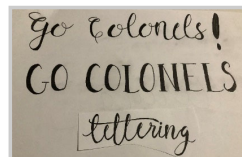 Go Colonels!
GO COLONELS
lettering